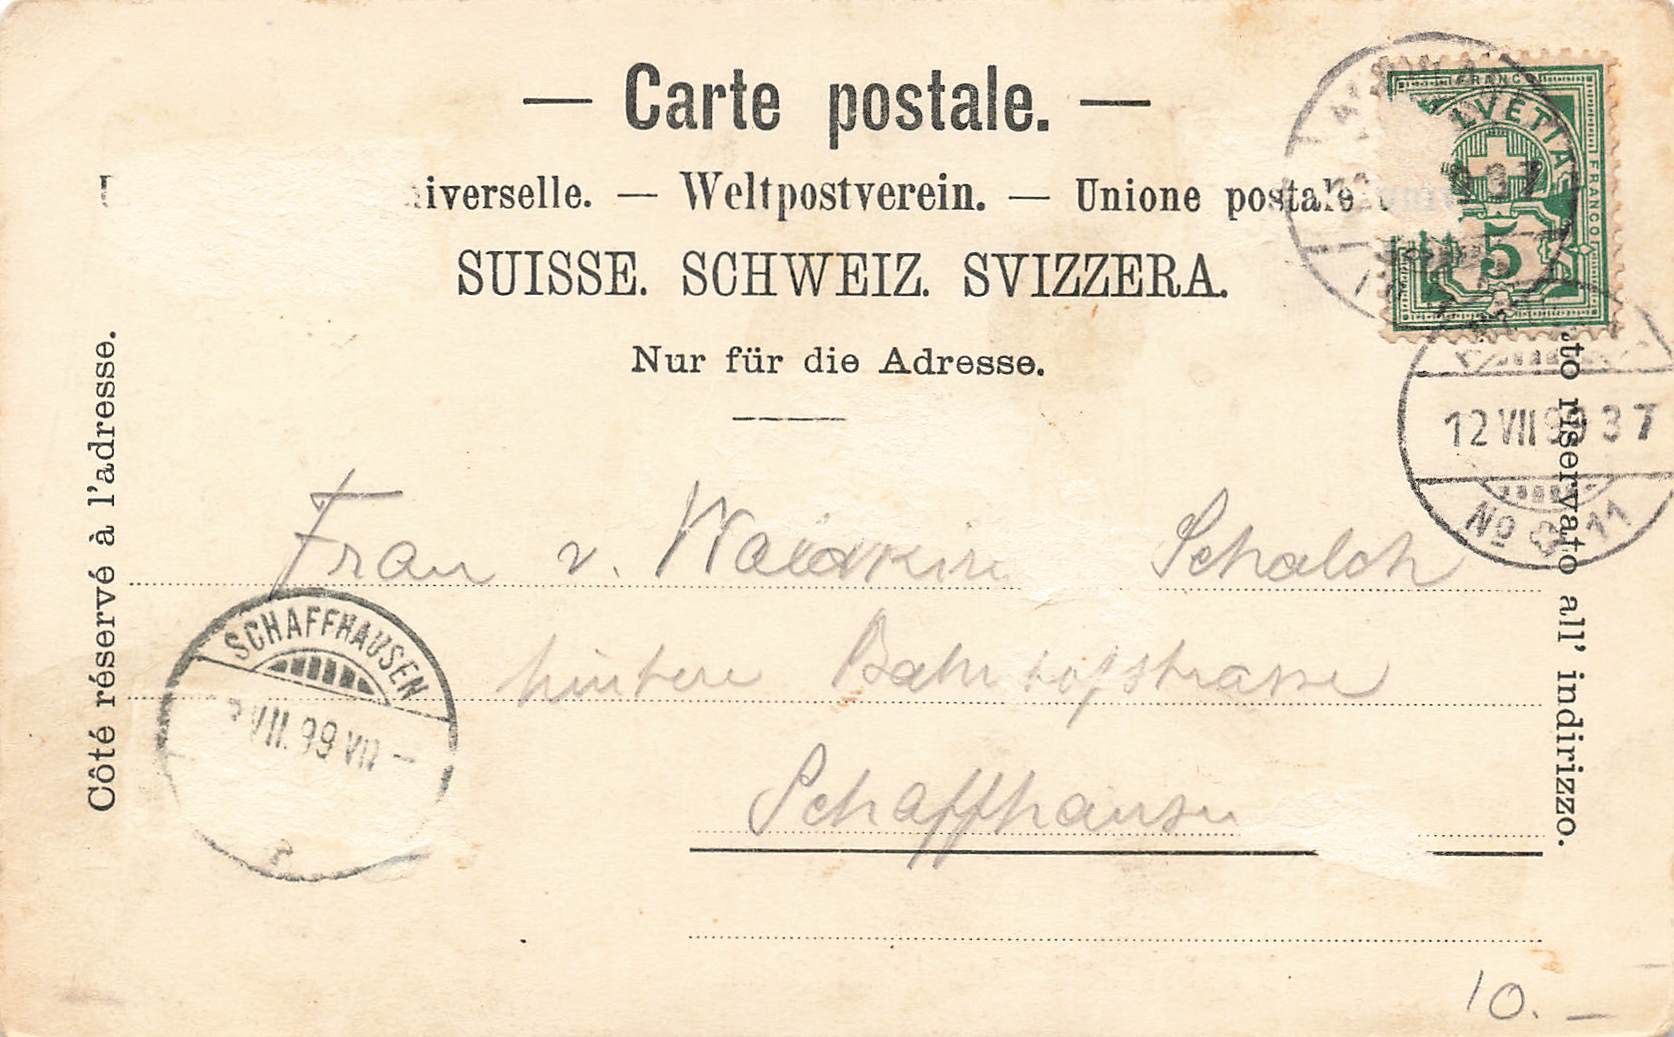 — Carte postale. —
iverselle. — Weltpostverein. — Unione postale
SUISSE. SCHWEIZ. SVIZZERA.
Nur für die Adresse.
Côté réservé à l'adresse.
riservato all' indirizzo.
FRANCO
HELVETIA
FRANCO
5
12 VII 99 37
No 11
Frau v. Waldkirch Schalch
hintere Bahnhofstrasse
Schaffhausen
SCHAFFHAUSEN
VII. 99 VII –
10.–